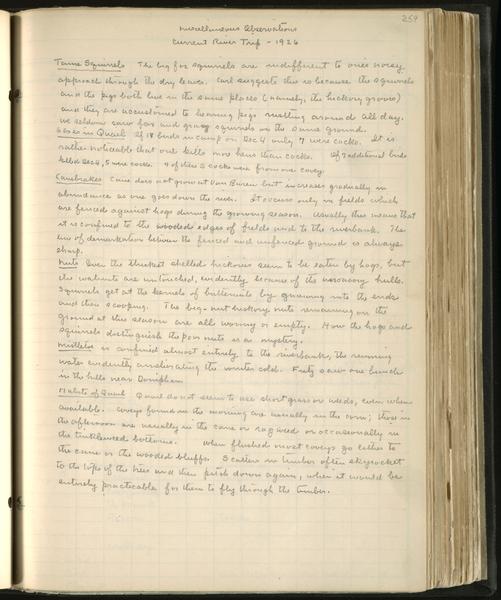 259
Miscellaneous Observations
Current River Trip - 1926
Tame Squirrels The big fox squirrels are indifferent to one's noisy
approach through the dry leaves. Carl suggests this is because the squirrels
and the pigs both live in the same place (namely, the hickory groves)
and they are accustomed to hearing pigs rustling around all day.
We seldom saw fox and gray squirrels on the same ground.
Sexes in Quail Of 18 birds in camp on Dec 4 only 7 were cocks. It is
rather noticeable that our kills more hens than cocks. Of 7 additional birds
killed Dec 4, 5 were cocks. 4 of these 5 cocks were from one covey.
Canebrakes Cane does not grow at Van Buren but increases gradually in
abundance as one goes down the river. It occurs only in fields which
are fenced against hogs during the growing season. Usually this means that
it is confined to the wooded edges of fields next to the riverbank. The
line of demarkation between the fenced and unfenced ground is always
sharp.
Nuts Even the thickest shelled hickories seem to be eaten by hogs, but
the walnuts are untouched, evidently because of the hulls.
Squirrels get at the kernels of butternuts by gnawing into the ends
and then scooping. The big-nut hickory nuts remaining on the
ground at this season are all wormy or empty. How the hogs and
squirrels distinguish the poor nuts is a mystery.
Mistletoe is confined almost entirely to the riverbanks, the running
water evidently ameliorating the winter cold. Fritz saw one bunch
in the hills near Doniphan.
Habits of Quail Quail do not seem to use short grass or weeds, even when
available. Coveys found in the morning are usually in the corn; those in
the afternoon are usually in the cane or ragweed or occasionally in
the timbered bottoms. When flushed most coveys go either to
the cane or the wooded bluffs. Scatters in timber often skyrocket
to the tops of the trees and then pitch down again, when it would be
entirely practicable for them to fly through the timber.